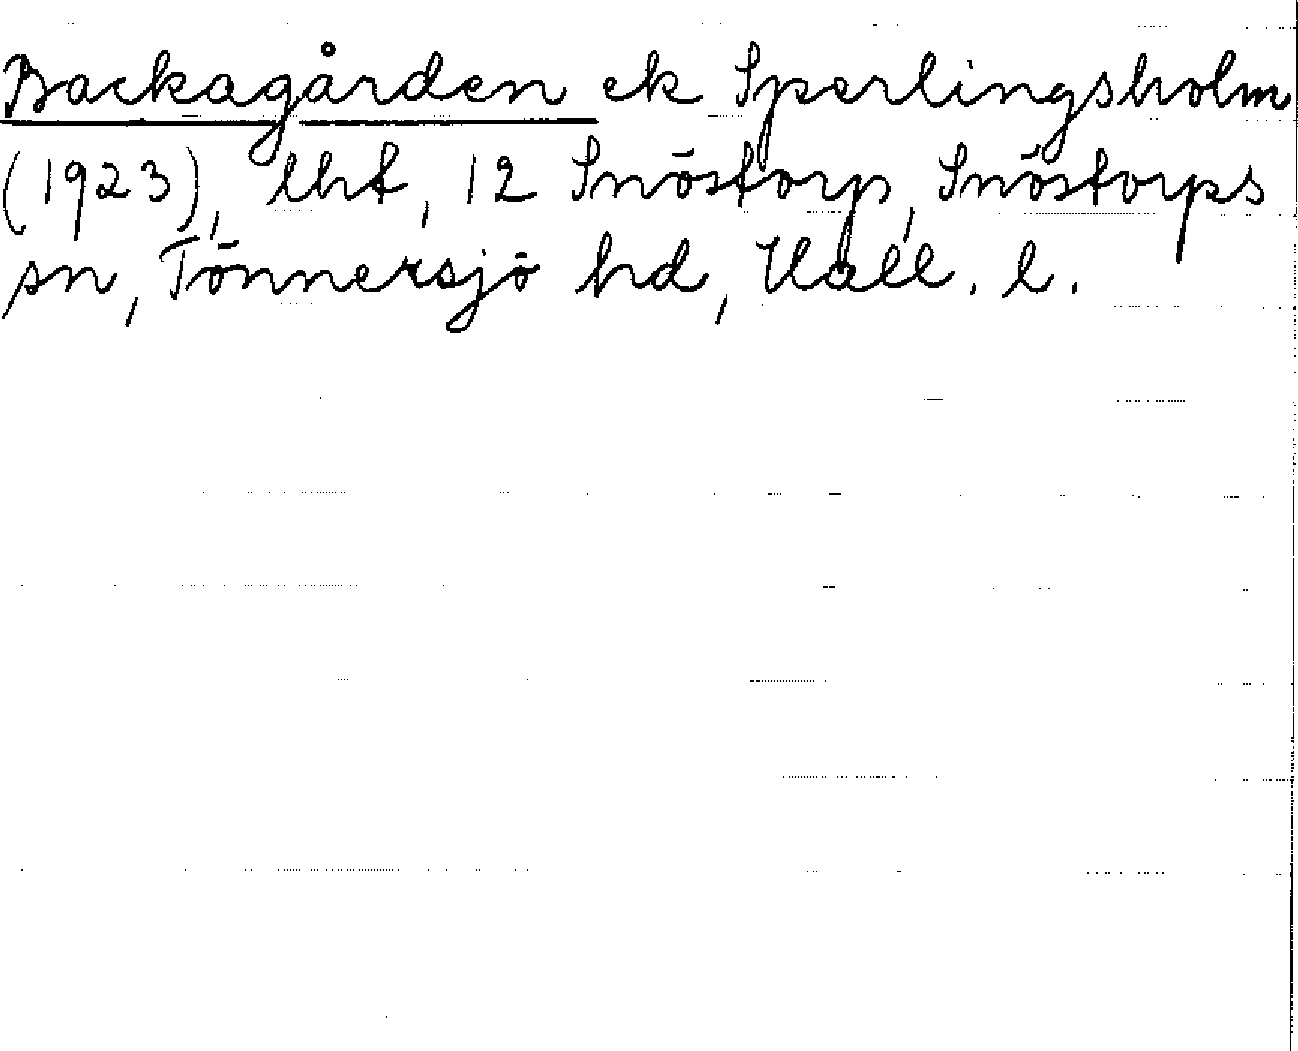 Backagården ek Sperlingsholm
(1923), lht, 12 Snöstorp, Snöstorps
sn, Tönnersjö hd, Hall. l.